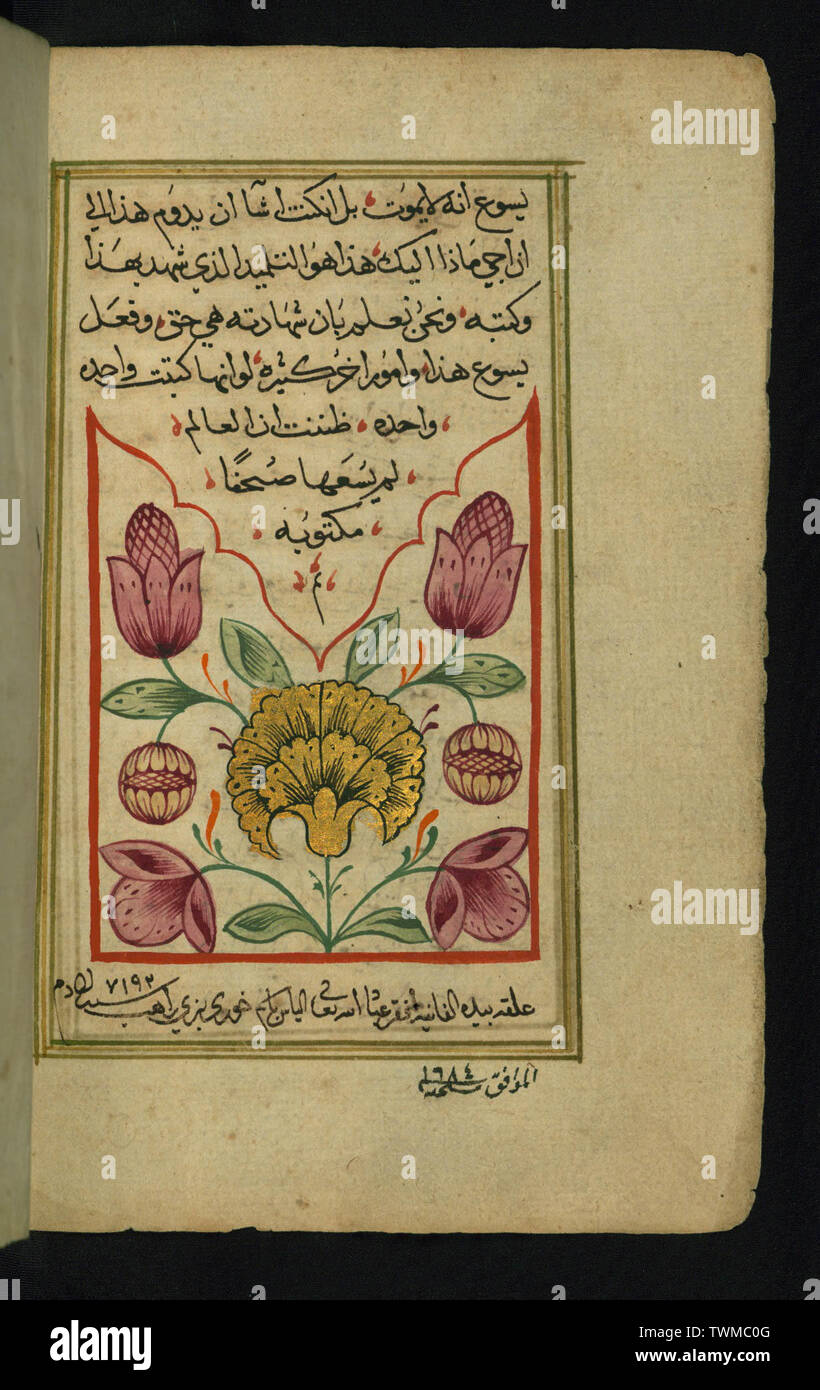 يسوع انه لا يموت بل انكنت اشا ان يدوم هذا الي
ان اجي ماذا اليك هذا هو التلميد الذي شهد بهذا
وكتبه ونحن نعلم بان شهادته هي حق وفعل
يسوع هذا وامورا اخر كثيره لو انها كتبت واحده
واحده ظننت ان العالم
لم يسعها صحفا
مكتوبه
تم
علقه بيده الفانية الياس باسم خوري راهب سنة ٧١٩٢ لادم
الموافق سنة ١٦٨٤
alamy
Image ID: TWMC0G
www.alamy.com